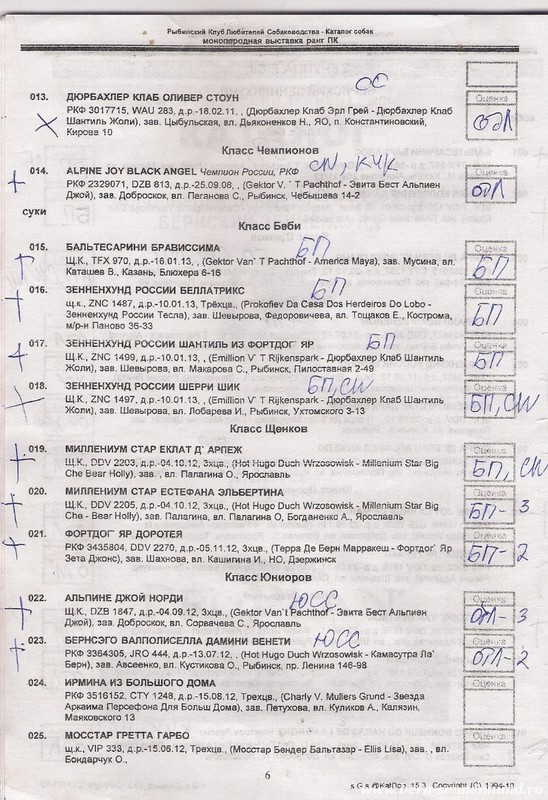 Рыбинский Клуб Любителей Собаководства - Каталог собак
монопородная выставка ранг ПК
СС
Оценка
013. ДЮРБАХЛЕР КЛАБ ОЛИВЕР СТОУН
РКФ 3017715, WAU 283, д.р.-18.02.11, , (Дюрбахлер Клаб Эрл Грей - Дюрбахлер Клаб
Шантиль Жоли), зав. Цыбульская, вл. Дьяконенков Н., ЯО, п. Константиновский,
Кирова 10
Класс Чемпионов
014. ALPINE JOY BLACK ANGEL Чемпион России, РКФ CW, КЧК
Оценка
РКФ 2329071, DZB 813, д.р.-25.09.08, , (Gektor V. ` T Pachthof - Эвита Бест Альпиен
Джой), зав. Доброскок, вл. Пеганова С., Рыбинск, Чебышева 14-2
суки
Класс Беби
015. БАЛЬТЕСАРИНИ БРАВИССИМА БП
Оценка
Щ.К., TFX 970, д.р.-16.01.13, , (Gektor Van` T Pachthof - America Maya), зав. Мусина, вл.
Каташев В., Казань, Блюхера 6-16
БП
016. ЗЕННЕНХУНД РОССИИ БЕЛЛАТРИКС БП
Оценка
щ.к., ZNC 1487, д.р.-10.01.13, Трёхцв., (Prokofiev Da Casa Dos Herdeiros Do Lobo -
Зенненхунд России Тесла), зав. Шевырова, Федоровичева, вл. Тощаков Е., Кострома,
м/р-н Паново 36-33
БП
017. ЗЕННЕНХУНД РОССИИ ШАНТИЛЬ ИЗ ФОРТДОГ ЯР БП
Оценка
Щ.К., ZNC 1499, д.р.-10.01.13, , (Emillion V` T Rijkenspark - Дюрбахлер Клаб Шантиль
Жоли), зав. Шевырова, вл. Макарова С., Рыбинск, Пилоставная 2-49
БП
018. ЗЕННЕНХУНД РОССИИ ШЕРРИ ШИК БП, CW
Оценка
Щ.К., ZNC 1497, д.р.-10.01.13, , (Emillion V` T Rijkenspark - Дюрбахлер Клаб Шантиль
Жоли), зав. Шевырова, вл. Лобарева И., Рыбинск, Ухтомского 3-13
БП, CW
Класс Щенков
019. МИЛЛЕНИУМ СТАР ЕКЛАТ Д` АРПЕЖ
Оценка
Щ.К., DDV 2203, д.р.-04.10.12, 3хцв., (Hot Hugo Duch Wrzosowisk - Millenium Star Big
Che Bear Holly), зав. вл. Палагина О., Ярославль
БП, CW
020. МИЛЛЕНИУМ СТАР ЕСТЕФАНА ЭЛЬБЕРТИНА
Оценка
Щ.К., DDV 2205, д.р.-04.10.12, 3хцв., (Hot Hugo Duch Wrzosowisk - Millenium Star Big
Che - Bear Holly), зав. Палагина, вл. Палагина О, Богданенко А., Ярославль
БП- 3
021. ФОРТДОГ ЯР ДОРОТЕЯ
Оценка
РКФ 3435804, DDV 2270, д.р.-05.11.12, 3хцв., (Терра Де Берн Марракеш - Фортдог Яр
Зета Джонс), зав. Шахнова, вл. Кашигина И., НО, Дзержинск
БП- 2
Класс Юниоров
022. АЛЬПИНЕ ДЖОЙ НОРДИ ЮСС
Оценка
Щ.К., DZB 1847, д.р.-04.09.12, 3хцв., (Gektor Van`t Pachthof - Эвита Бест Альпиен
Джой), зав. Доброскок, вл. Сорвачева С., Ярославль
ОТЛ- 3
023. БЕРНСЭГО ВАЛПОЛИСЕЛЛА ДАМИНИ ВЕНЕТИ ЮСС
Оценка
РКФ 3364305, JRO 444, д.р.-13.07.12, , (Hot Hugo Duch Wrzosowisk - Камасутра Ла`
Берн), зав. Авсеенко, вл. Кустикова О., Рыбинск, пр. Ленина 146-98
ОТЛ-2
024. ИРМИНА ИЗ БОЛЬШОГО ДОМА
Оценка
РКФ 3516152, CTY 1248, д.р.-15.08.12, Трехцв., (Charly V. Mullers Grund - Звезда
Аркаима Персефона Для Больш Дома), зав. Петухова, вл. Куликов А., Калязин,
Маяковского 13
025. МОССТАР ГРЕТТА ГАРБО
Оценка
щ.к., VIP 333, д.р.-15.06.12, Трехцв., (Мосстар Бендер Бальтазар - Ellis Lisa), зав. , вл.
Бондарчук О.,
6
Copyright (C) 1994-10